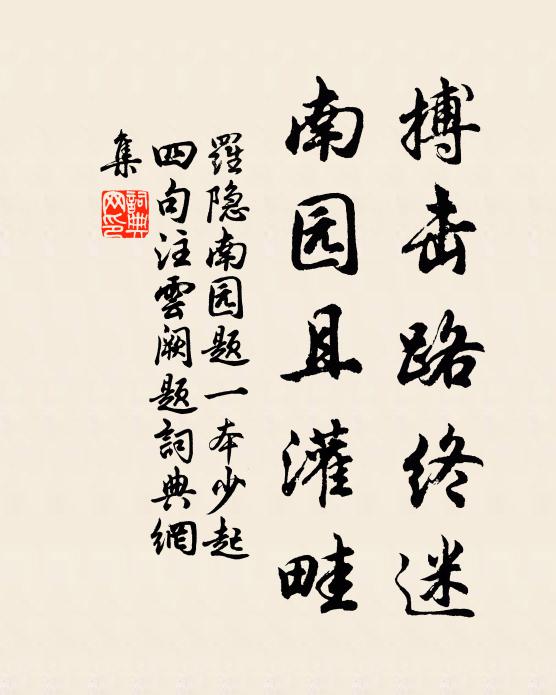 搏击路终迷
南园且灌畦
羅隐南园题一本少起
四句注雲阙题詞典網
集
詞典网印